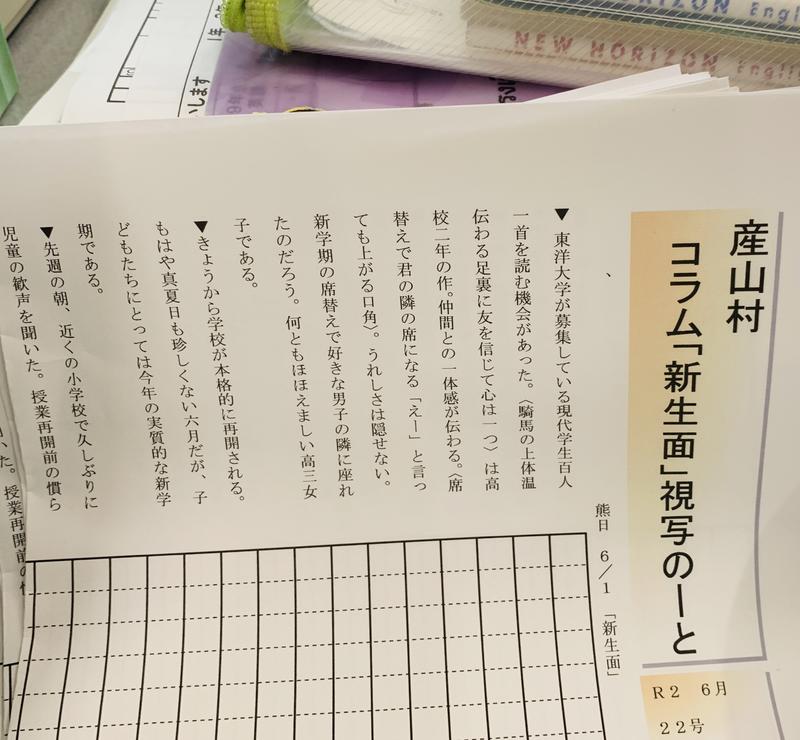 産山村
コラム「新生面」視写のーと
R2 6月
22号
熊日 6/1 「新生面」
▼ 東洋大学が募集している現代学生百人
一首を読む機会があった。〈騎馬の上体温
伝わる足裏に友を信じて心は一つ〉は高
校二年の作。仲間との一体感が伝わる。〈席
替えで君の隣の席になる「えー」と言っ
ても上がる口角〉。うれしさは隠せない。
新学期の席替えで好きな男子の隣に座れ
たのだろう。何ともほほえましい高三女
子である。
▼きょうから学校が本格的に再開される。
もはや真夏日も珍しくない六月だが、子
どもたちにとっては今年の実質的な新学
期である。
▼先週の朝、近くの小学校で久しぶりに
児童の歓声を聞いた。授業再開前の慣ら
いた。授業再開前の
NEW HORIZON English
HORIZON Engl
1年
します